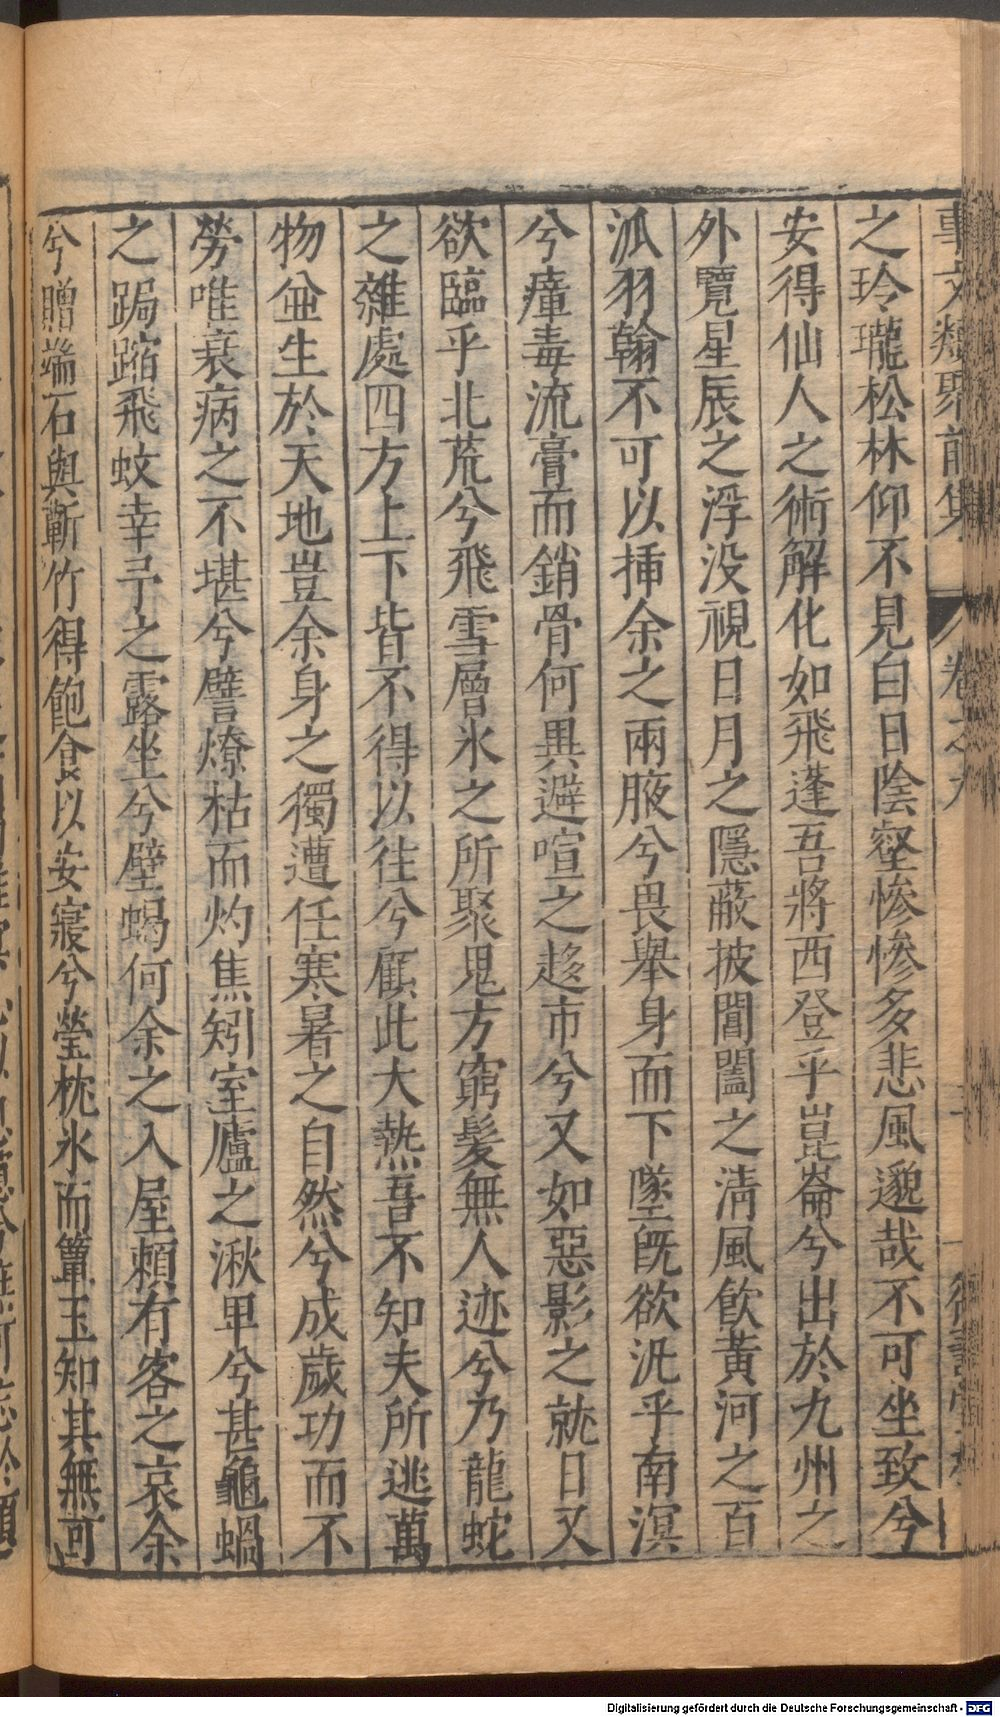 事文類聚前集 卷之九
之玲瓏松林仰不見白日陰壑慘慘多悲風邈哉不可坐致兮
安得仙人之術解化如飛蓬吾將西登乎崑崙兮出於九州之
外覽星辰之浮没視日月之隱蔽披閶闔之清風飲黃河之百
派羽翰不可以揷余之兩腋兮畏舉身而下墜旣欲汎乎南溟
兮瘴毒流膏而銷骨何異避喧之趍市兮又如惡影之就日又
欲臨乎北荒兮飛雪層氷之所聚鬼方窮髮無人迹兮乃龍蛇
之雜處四方上下皆不得以往兮顧此大熱吾不知夫所逃萬
物並生於天地豈余身之獨遭任寒暑之自然兮成歲功而不
勞唯衰病之不堪兮譬燎枯而灼焦矧室廬之湫甲兮甚龜蝸
之跼蹜飛蚊幸予之露坐兮壁蝎何余之入屋頼有客之哀余
兮贈端石與蘄竹得飽食以安寢兮瑩枕氷而簟玉知其無可
Digitalisierung gefördert durch die Deutsche Forschungsgemeinschaft - DFG